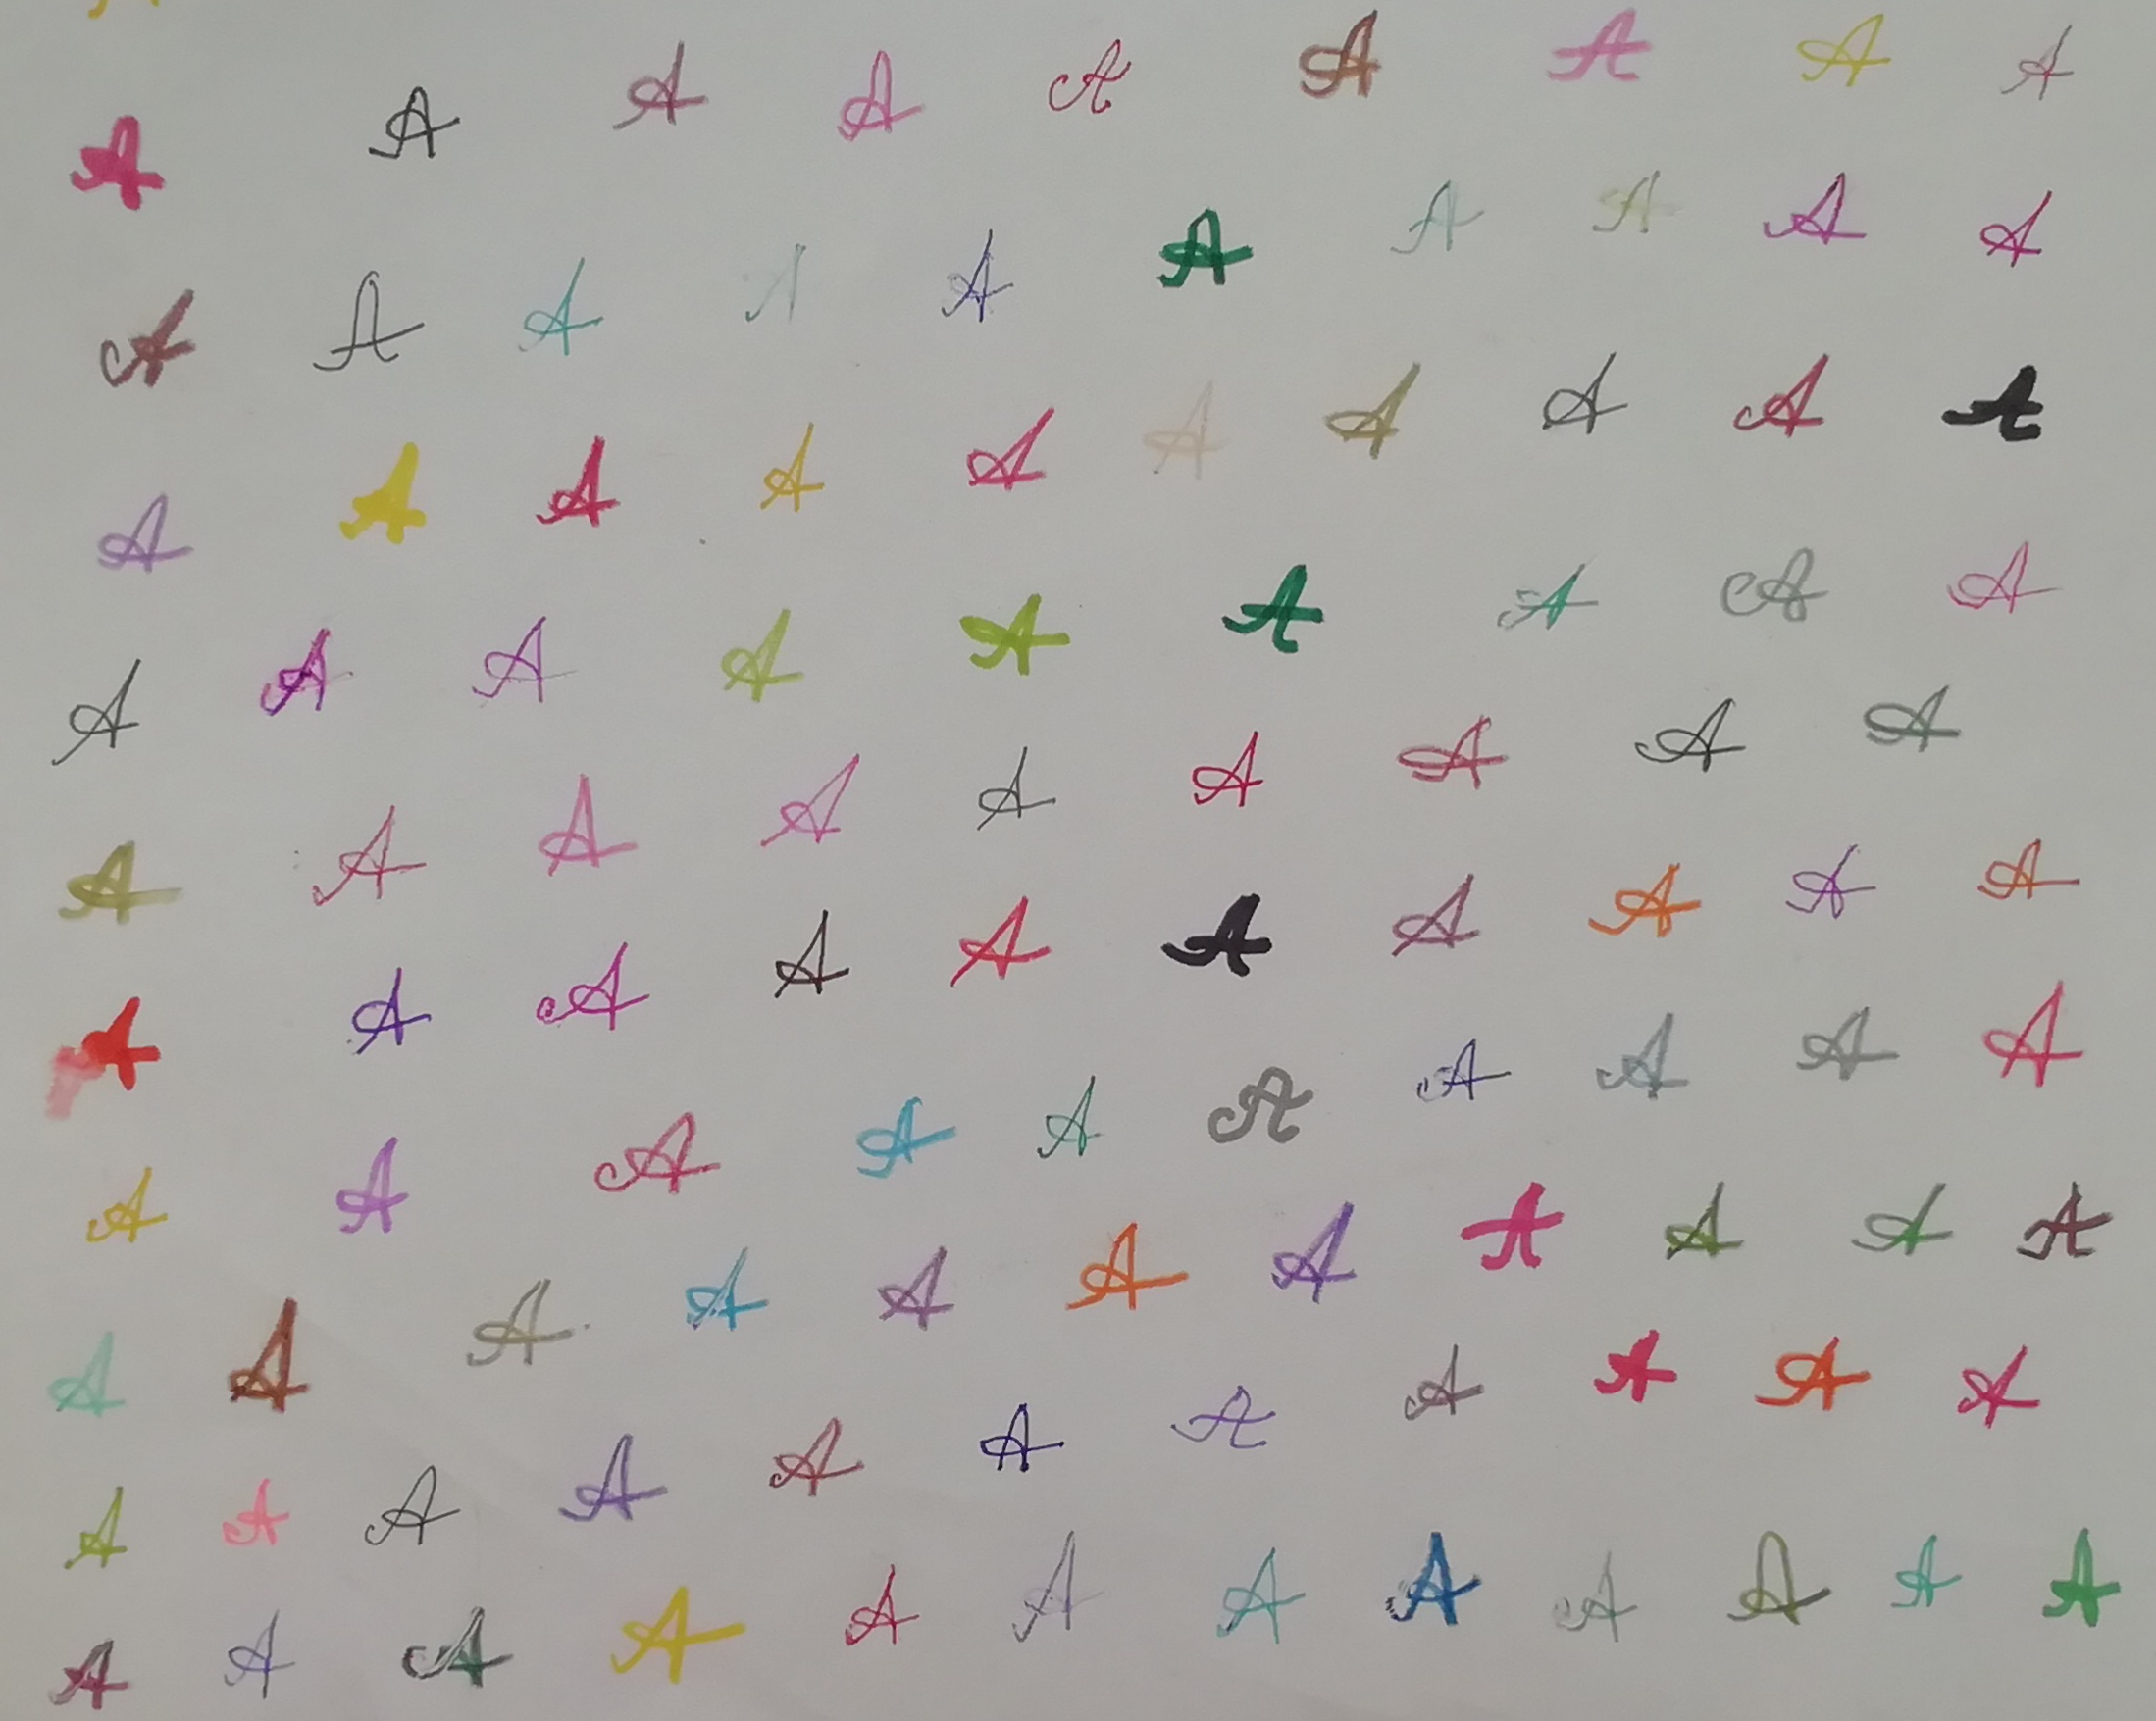 A A A A A A A A A
A A A A A A A A A A
A A A A A A A A A A
A A A A A A A A A
A A A A A A A A A
A A A A A A A A A A
A A A A A A A A A A
A A A A A A A A A A A
A A A A A A A A A A A
A A A A A A A A A A A A